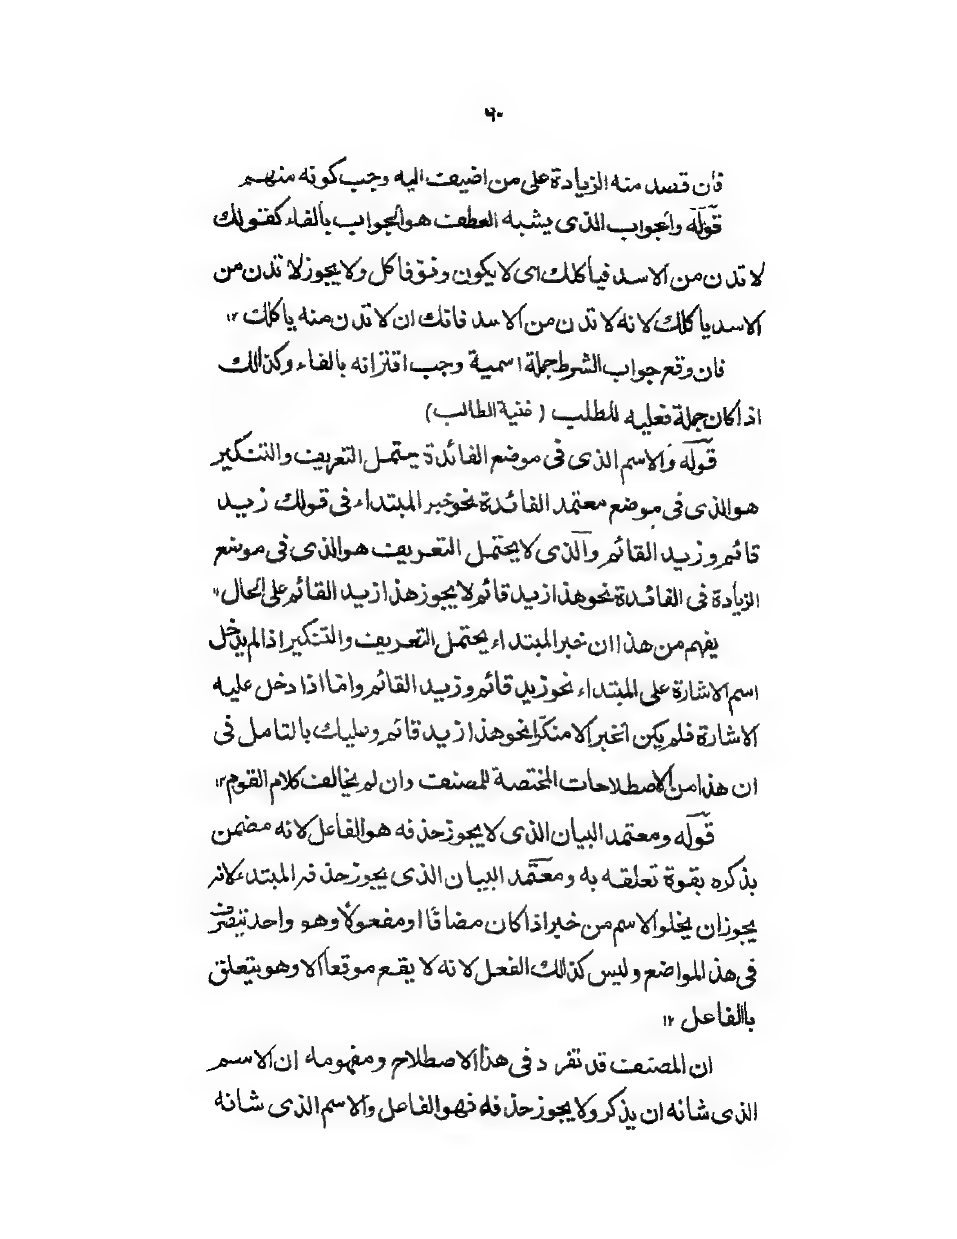 ٦٠
فان قصد منه الزيادة على من اضيفت اليه وجب كونه منهم
قوله والجواب الذى يشبه العطف هو الجواب بالفاء كقولك
لا تدن من الاسد فيأكلك اى لا يكون دنو فاكل ولا يجوز لا تدن من
الاسد يا كلك لانه لا تدن من الاسد فانك ان لا تدن منه يا كلك ١٢
فان وقع جواب الشرط جملة اسمية وجب اقترانه بالفاء وكذالك
اذا كان جملة فعليه للطلب (غنية الطالب)
قوله والاسم الذى فى موضع الفائدة يحتمل التعريف والتنكير
هو الذى فى موضع معتمد الفائدة نحو خبر المبتداء فى قولك زيد
قائم وزيد القائم والذى لا يحتمل التعريف هو الذى فى موضع
الزيادة فى الفائدة نحو هذا زيد قائم لا يجوز هذا زيد القائم على الحال ١٢
يفهم من هذا ان خبر المبتداء يحتمل التعريف والتنكير اذا لم يدخل
اسم الاشارة على المبتداء نحو زيد قائم وزيد القائم واما اذا دخل عليه
الاشارة فلم يكن الخبر الا منكرا نحو هذا زيد قائم وعليك بالتامل فى
ان هذا من الاصطلاحات المختصة للمصنف وان لم يخالف كلام القوم ١٢
قوله ومعتمد البيان الذى لا يجوز حذفه هو الفاعل لانه مضمن
بذكره بقوة تعلقه به ومعتمد البيان الذى يجوز حذفه المبتداء لانه
يجوز ان يخلو الاسم من خبر اذا كان مضافًا او مفعولًا وهو واحد تيصرف
فى هذ المواضع وليس كذالك الفعل لانه لا يقع موقعاً الا وهو يتعلق
باالفاعل ١٢
ان المصنف قد تفرد فى هذا الاصطلاح ومفهومه ان الاسم
الذى شانه ان يذكر ولا يجوز حذفه فهو الفاعل والاسم الذى شانه